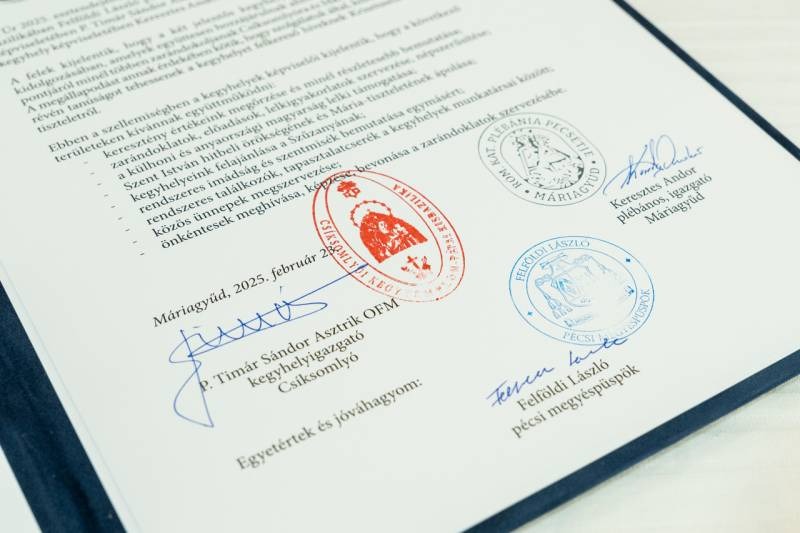 Úr 2025. esztendejében
zilikában Felföldi László p
képviseletében P. Tímár Sándor A
kegyhely képviseletében Keresztes An
A felek kijelentik, hogy a két jelentős kegyhely
kidolgozásában, amelyek együttesen hozzájárul
pontjáról minél többen zarándokoljanak Csíksomlyóra és M
A megállapodást annak érdekében kötik, hogy szolgálatuk által, közö
révén tanúságot tehessenek a kegyhelyet felkereső híveknek Krisztusról
tiszteletről.
Ebben a szellemiségben a kegyhelyek képviselői kijelentik, hogy a következő
területeken kívánnak együttműködni:
- keresztény értékeink megőrzése és minél részletesebb bemutatása;
- zarándoklatok, előadások, lelkigyakorlatok szervezése, népszerűsítése;
- a külhoni és anyaországi magyarság lelki támogatása;
- Szent István hitbeli örökségének és Mária-tiszteletének ápolása;
- kegyhelyeink felajánlása a Szűzanyának;
- rendszeres imádság és szentmisék bemutatása egymásért;
- rendszeres találkozók, tapasztalatcserék a kegyhelyek munkatársai között;
- közös ünnepek megszervezése;
- önkéntesek meghívása, képzése, bevonása a zarándoklatok szervezésébe.
CSÍKSOMLYÓI KEGYTEMPLOM
KISBAZILIKA
RÓM. KAT. PLÉBÁNIA PECSÉTJE
MÁRIAGYŰD
Keresztes Andor
plébános, igazgató
Máriagyűd
Máriagyűd, 2025. február 23.
P. Tímár Sándor Asztrik OFM
kegyhelyigazgató
Csíksomlyó
FELFÖLDI LÁSZLÓ
PÉCSI MEGYÉSPÜSPÖK
Felföldi László
pécsi megyéspüspök
Egyetértek és jóváhagyom: